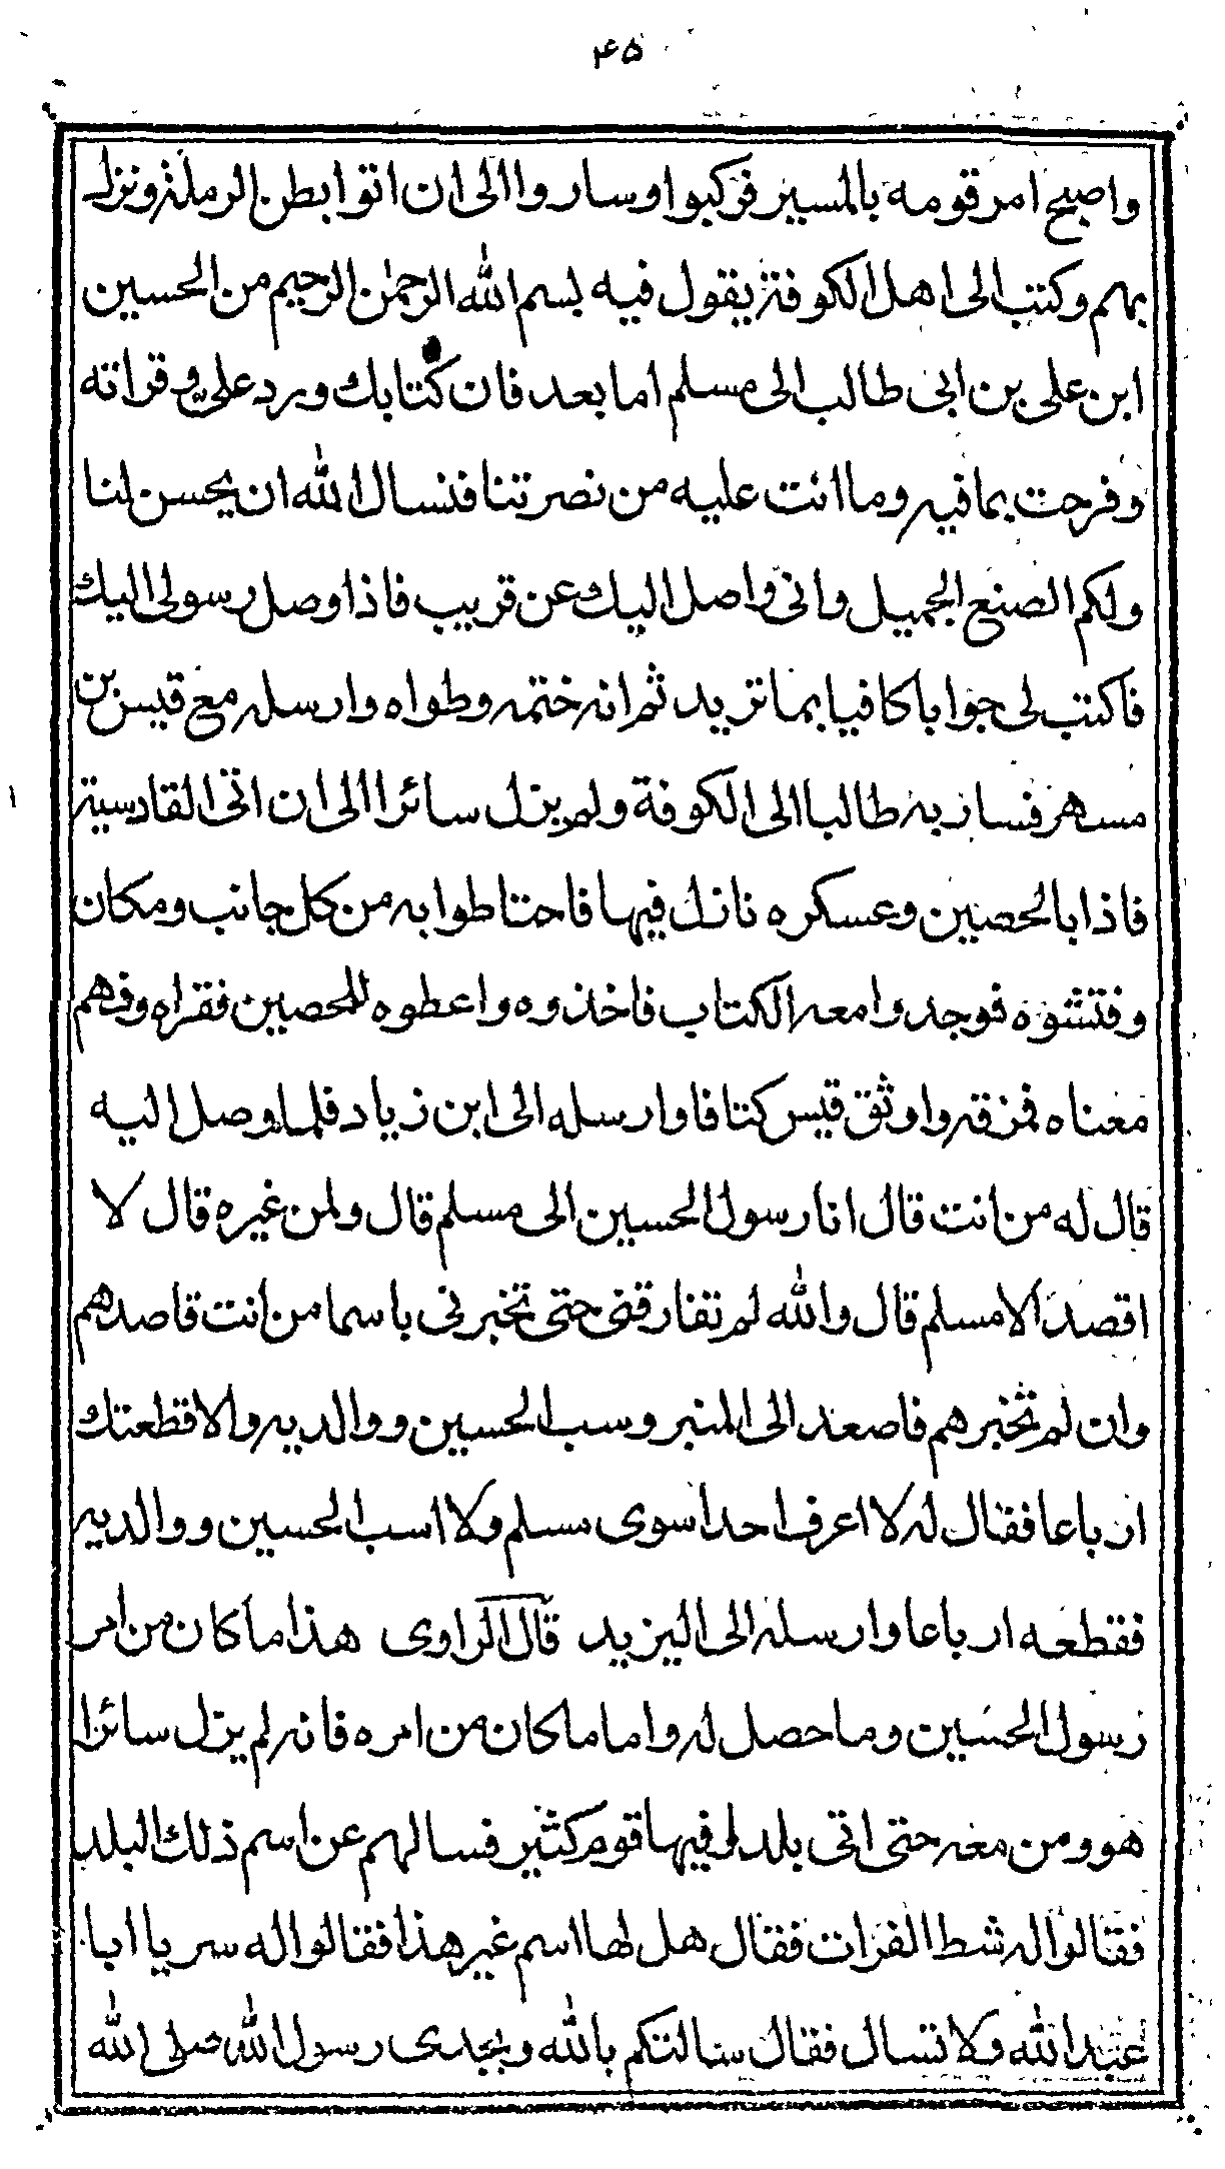 ۴۵
واصبح امر قومه بالمسير فركبوا وساروا الى ان اتوا بطن الرملة ونزل
بهم وكتب الى اهل الكوفة يقول فيه بسم الله الرحمن الرحيم من الحسين
ابن على بن ابى طالب الى مسلم اما بعد فان كتابك ورد على وقراته
وفرحت بما فيه وما انت عليه من نصرتنا فنسال الله ان يحسن لنا
ولكم الصنع الجميل وانى واصل اليك عن قريب فاذا وصل رسولى اليك
فاكتب لى جوابا كافيا بما تريد ثم انه ختمه وطواه وارسله مع قيس بن
مسهر فسار به طالبا الى الكوفة ولم يزل سائرا الى ان اتى القادسية
فاذا بالحصين وعسكره نازل فيها فاحتاطوا به من كل جانب ومكان
وفتشوه فوجدوا معه الكتاب فاخذوه واعطوه للحصين فقراه وفهم
معناه فمزقه واوثق قيس كتافا وارسله الى ابن زياد فلما وصل اليه
قال له من انت قال انا رسول الحسين الى مسلم قال ولمن غيره قال لا
اقصد الا مسلم قال والله لم تفارقنى حتى تخبرنى باسما من انت قاصدهم
وان لم تخبرهم فاصعد الى المنبر وسب الحسين ووالديه والا قطعتك
ارباعا فقال له لا اعرف احدا سوى مسلم ولا اسب الحسين ووالديه
فقطعه ارباعا وارسله الى اليزيد قال الراوى هذا ما كان من امر
رسول الحسين وما حصل له واما ما كان من امره فانه لم يزل سائرا
هو ومن معه حتى اتى بلد لى فيها قوم كثير فسالهم عن اسم ذلك البلد
فقالوا له شط الفرات فقال هل لها اسم غير هذا فقالوا له سر يا ابا
عبد الله ولا تسال فقال سالتكم بالله وبجدى رسول الله صلى الله